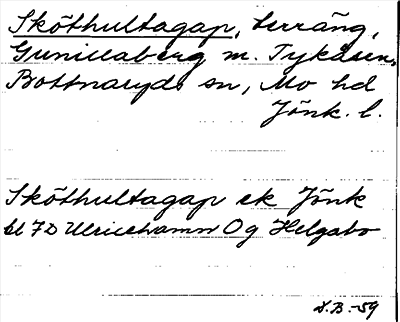 Sköthultagap, terräng,
Gunillaberg m. Tykåsen,
Bottnaryds sn, Mo hd
Jönk. l.
Sköthultagap ek Jönk
bl 7D Ulricehamn Og Helgabo
S.B. -59